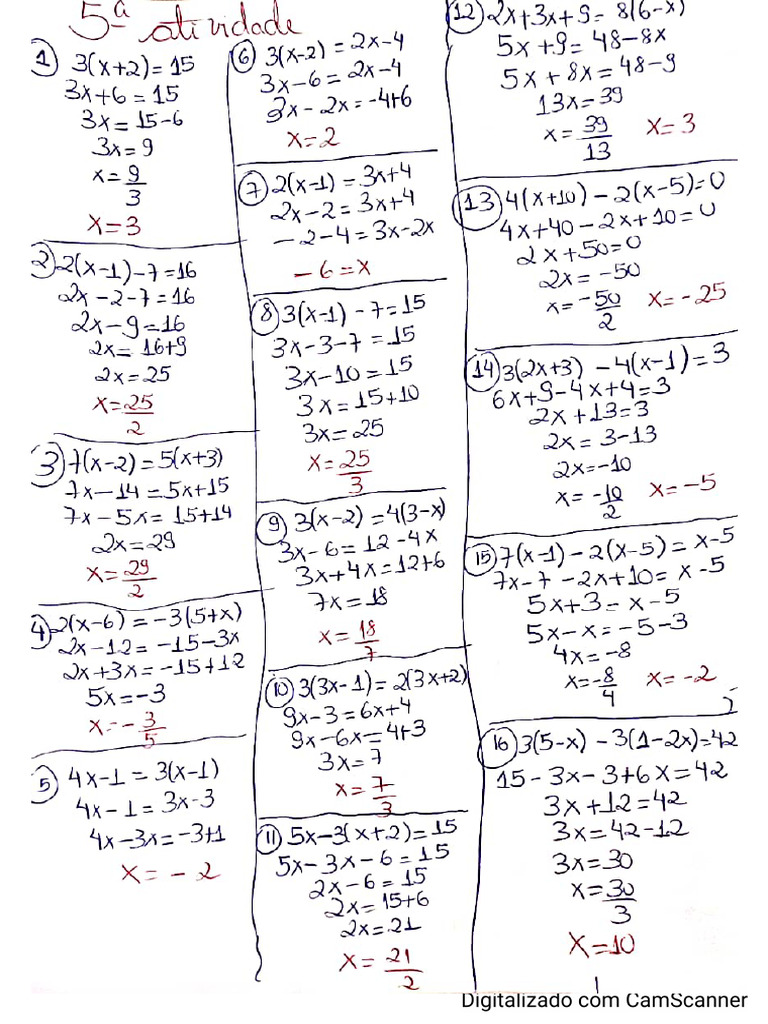 5ª atividade
1) 3(x+2)=15
3x+6=15
3x=15-6
3x=9
x=9/3
x=3
2) 2(x-1)-7=16
2x-2-7=16
2x-9=16
2x=16+9
2x=25
x=25/2
3) 7(x-2)=5(x+3)
7x-14=5x+15
7x-5x=15+14
2x=29
x=29/2
4) 2(x-6)=-3(5+x)
2x-12=-15-3x
2x+3x=-15+12
5x=-3
x=-3/5
5) 4x-1=3(x-1)
4x-1=3x-3
4x-3x=-3+1
x=-2
6) 3(x-2)=2x-4
3x-6=2x-4
3x-2x=-4+6
x=2
7) 2(x-1)=3x+4
2x-2=3x+4
-2-4=3x-2x
-6=x
8) 3(x-1)-7=15
3x-3-7=15
3x-10=15
3x=15+10
3x=25
x=25/3
9) 3(x-2)=4(3-x)
3x-6=12-4x
3x+4x=12+6
7x=18
x=18/7
10) 3(3x-1)=2(3x+2)
9x-3=6x+4
9x-6x=4+3
3x=7
x=7/3
11) 5x-3(x+2)=15
5x-3x-6=15
2x-6=15
2x=15+6
2x=21
x=21/2
12) 2x+3x+9=8(6-x)
5x+9=48-8x
5x+8x=48-9
13x=39
x=39/13 x=3
13) 4(x+10)-2(x-5)=0
4x+40-2x+10=0
2x+50=0
2x=-50
x=-50/2 x=-25
14) 3(2x+3)-4(x-1)=3
6x+9-4x+4=3
2x+13=3
2x=3-13
2x=-10
x=-10/2 x=-5
15) 7(x-1)-2(x-5)=x-5
7x-7-2x+10=x-5
5x+3=x-5
5x-x=-5-3
4x=-8
x=-8/4 x=-2
16) 3(5-x)-3(1-2x)=42
15-3x-3+6x=42
3x+12=42
3x=42-12
3x=30
x=30/3
x=10
Digitalizado com CamScanner